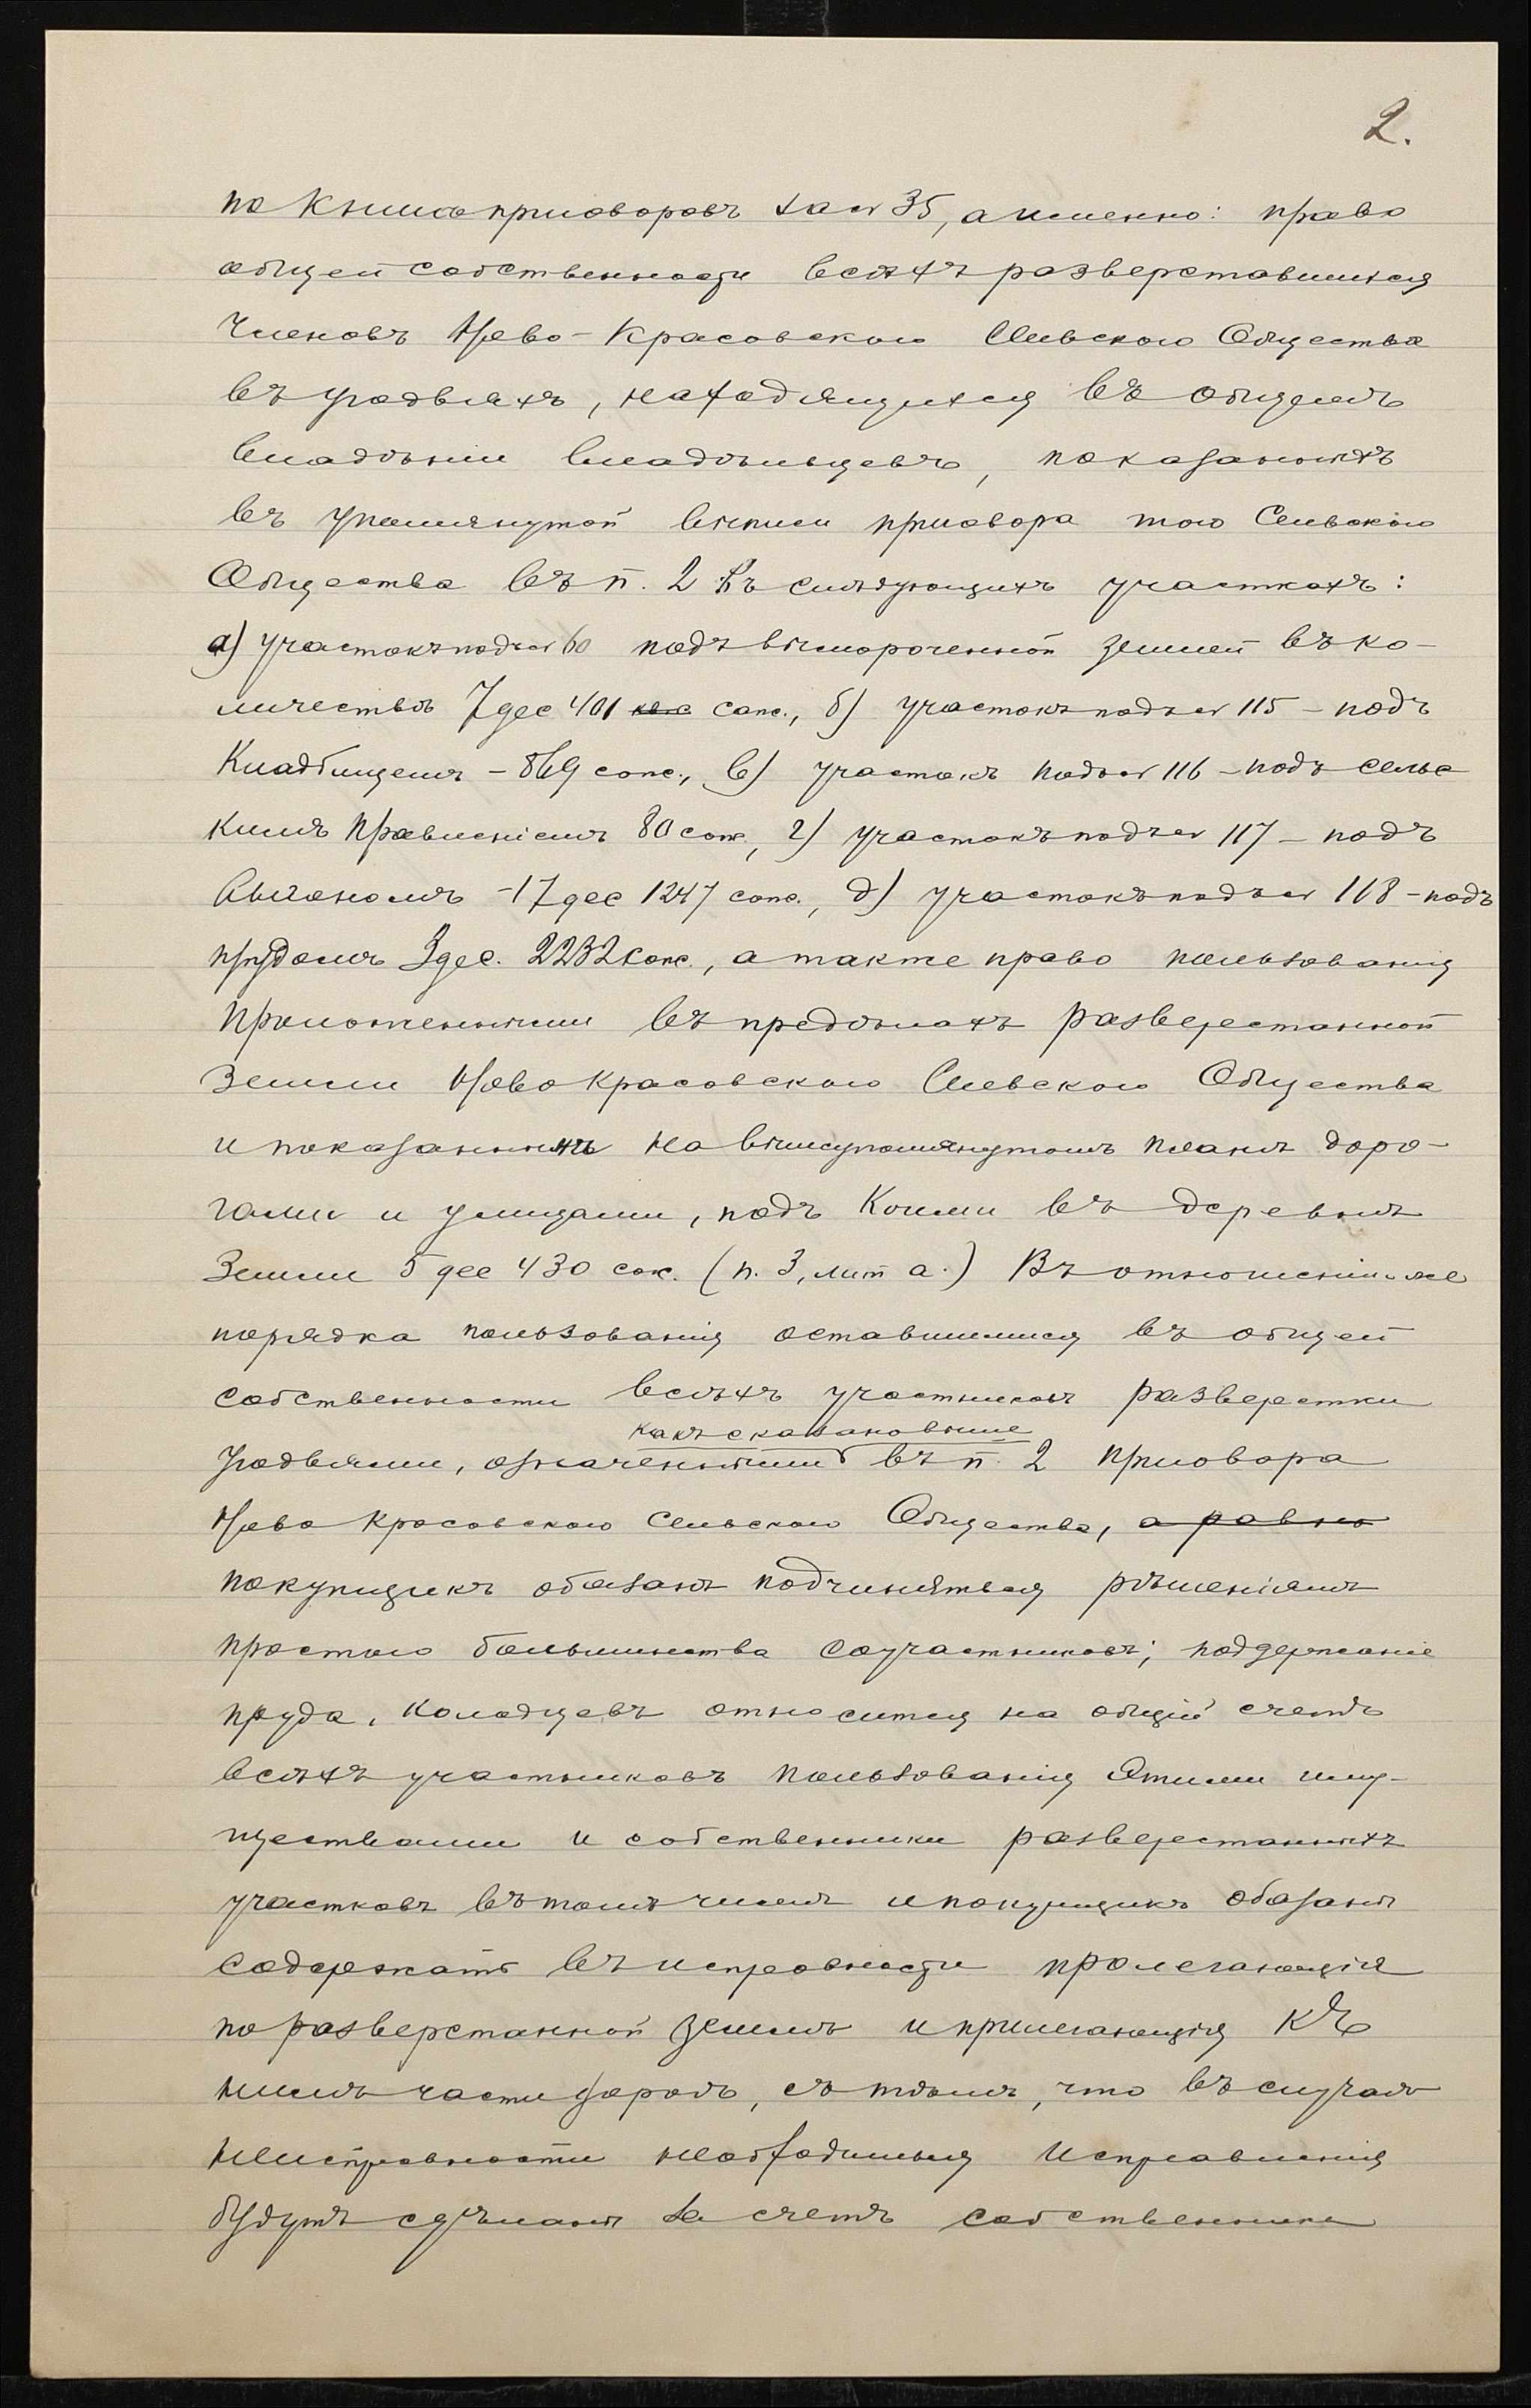 2.
по книгѣ приговоровъ за № 35, а именно: право
общей собственности всѣхъ разверставшихся
членовъ Ново-Красовскаго Сельскаго Общества
въ угодьяхъ, находящихся въ общемъ
владѣніи владѣльцевъ, показанныхъ
въ упомянутой выписи приговора того Сельскаго
Общества въ п. 2 въ слѣдующихъ участкахъ:
а) участокъ подъ № 60 подъ вымороченной землей въ ко-
личествѣ 7 дес 401 кв с саж., б) участокъ подъ № 115 - подъ
Кладбищемъ - 869 саж., в) участокъ подъ № 116 - подъ сельс
кимъ правленіемъ 80 саж, г) участокъ подъ № 117 - подъ
Выгономъ - 17 дес 1247 саж., д) участокъ подъ № 118 - подъ
прудомъ 3 дес. 2232 саж., а также право пользованія
проложенными въ предѣлахъ разверстанной
земли Ново Красовскаго Сельскаго Общества
и показанныхъ на вышеупомянутомъ планѣ доро-
гами и улицами, подъ коими въ деревнѣ
земли 5 дес 430 саж. (п. 3, лит а.) Въ отношеніи же
порядка пользованія оставшимися въ общей
собственности всѣхъ участниковъ разверстки
какъ сказано выше
угодьями, означенными въ п. 2 приговора
Ново Красовскаго Сельскаго Общества, а равно
покупщикъ обязанъ подчиняться рѣшеніямъ
простого большинства соучастниковъ; поддержаніе
пруда, колодцевъ относится на общій счетъ
всѣхъ участниковъ пользованія этими иму-
ществами и собственники разверстанныхъ
участковъ въ томъ числѣ и покупщикъ обязаны
содержать въ исправности пролегающія
по разверстанной землѣ и прилегающія къ
нимъ части дорогъ, съ тѣмъ, что въ случаѣ
неисправности необходимыя исправленія
будутъ сдѣланы за счетъ собственника